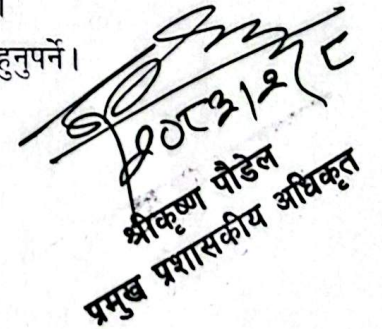 हुनुपर्ने।
२०८३।२।८
श्रीकृष्ण पौडेल
प्रमुख प्रशासकीय अधिकृत